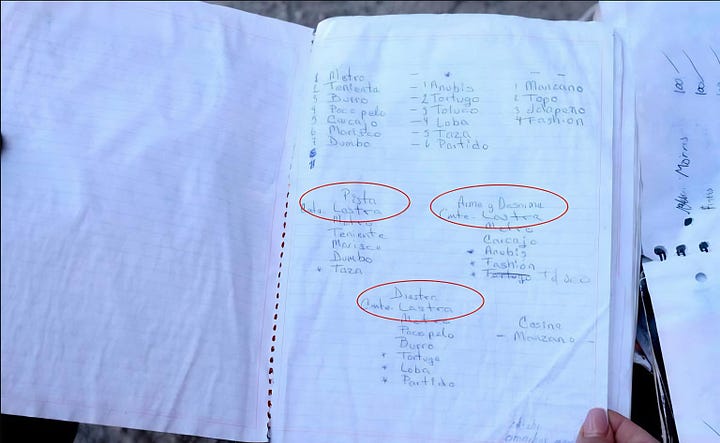 1 Metro
2 Teniente
3 Burro
4 Pocopelo
5 Carcajo
6 Marisco
7 Dumbo
8
- 1 Anubis
- 2 Tortugo
- 3 Toluco
- 4 Loba
- 5 Taza
- 6 Partido
1 Manzano
2 Topo
3 Jalapeño
4 Fashion
Pista
Cmte. Lastra
Metro
Teniente
Marisco
Dumbo
* Taza
Arme y Desarme
Cmte. Lastra
Metro
Carcajo
* Anubis
* Fashion
* Tortugo Toluco
Diestra
Cmte. Lastra
Metro
Pocopelo
Burro
* Tortugo
* Loba
* Partido
Cosina
- Manzano -
100
100
Morris